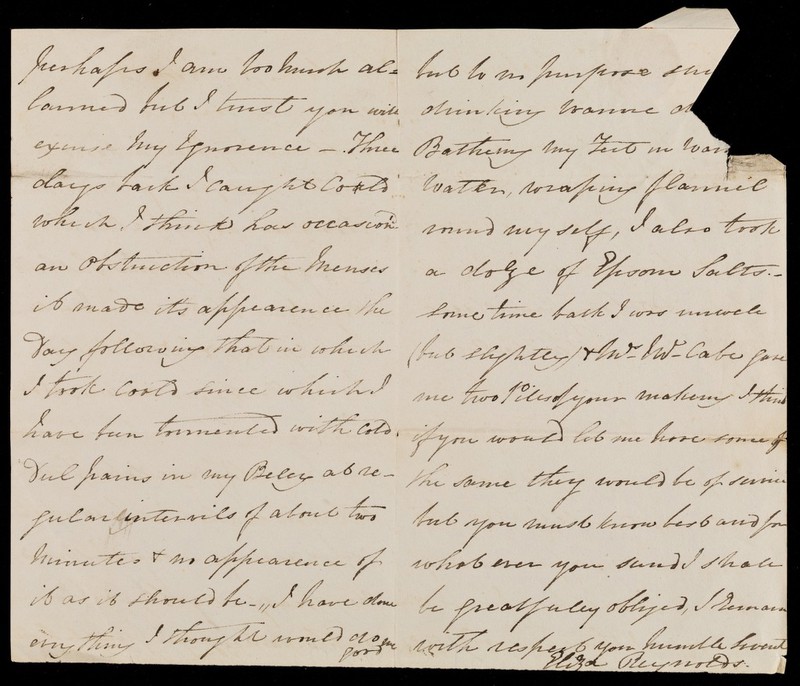 perhaps I am too much al=
larmed but I trust you will
excuse my Ignorence - Three
days back I caught Cold
which I think has occasion'd
an Obstruction of the Menses
it made its appearence the
Day following that in which
I took Coold since which I
have been tormented with Cold
Dul pains in my Beley at re-
gular intervils of about two
Minutes & no appearence of
it as it should be - I have done
every thing I thought would do me
good
but to no purpose
drinking warme
Batheing my Feet in
Water, wraping flannil
round my self, I also took
a doze of Epsom Salts.-
Some time back I was unwele
(but slightly) & Mr. McCabe gave
me two Piles of your makeing I think
if you would let me have some of
the same they would be of servic
but you must know best and for
what ever you send I shall
be greatfuley obliged, I Remain
with respect your humble Servent
Eliza Reynolds.